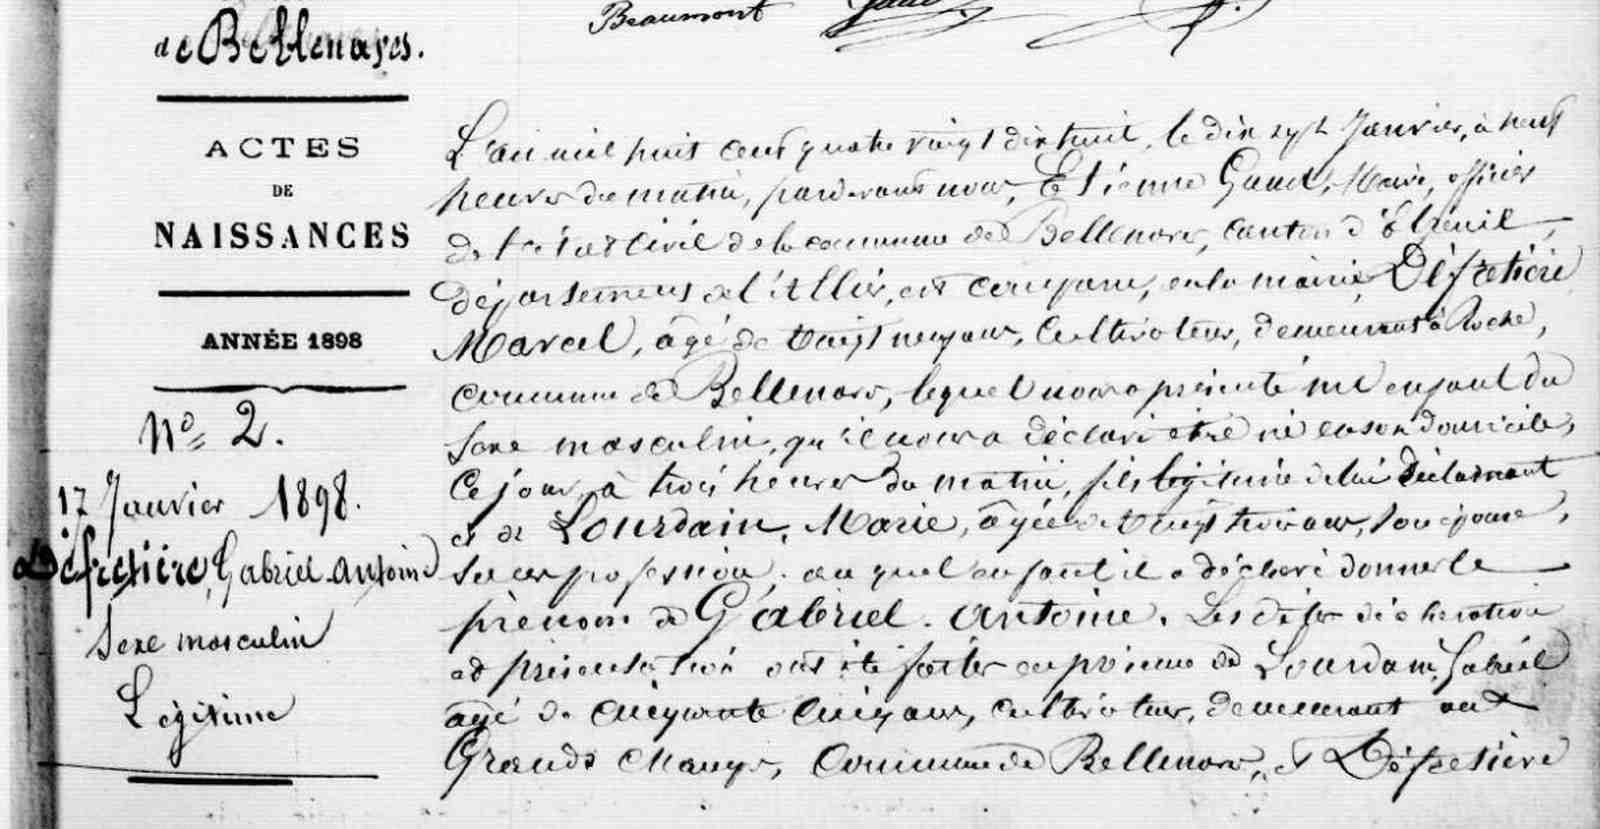 Beaumont
de Bellenaves.
ACTES
DE
NAISSANCES
ANNÉE 1898
N° 2.
17 Janvier 1898.
Défretière, Gabriel-Antoine
Sexe masculin
Légitime
L'an mil huit cent quatre vingt dix huit, le dix sept Janvier, à neuf
heures du matin, pardevant nous, Etienne Gaud, Maire, officier
de l'état civil de la commune de Bellenaves, canton d'Ebreuil,
département de l'Allier, est comparu, en la mairie, Défretière
Marcel, âgé de vingt neuf ans, cultivateur, demeurant à Roche,
commune de Bellenaves, lequel nous a présenté un enfant du
sexe masculin, qu'il nous a déclaré être né en son domicile,
ce jour, à trois heures du matin, fils légitime de lui déclarant
et de Lourdain, Marie, âgée de vingt trois ans, son épouse,
sans profession, auquel enfant il a déclaré donner le
prénom de Gabriel-Antoine. Les dites déclaration
et présentation ont été faites en présence de Lourdain, Gabriel
âgé de cinquante cinq ans, cultivateur, demeurant aux
Grands Champs, commune de Bellenaves, et Défretière